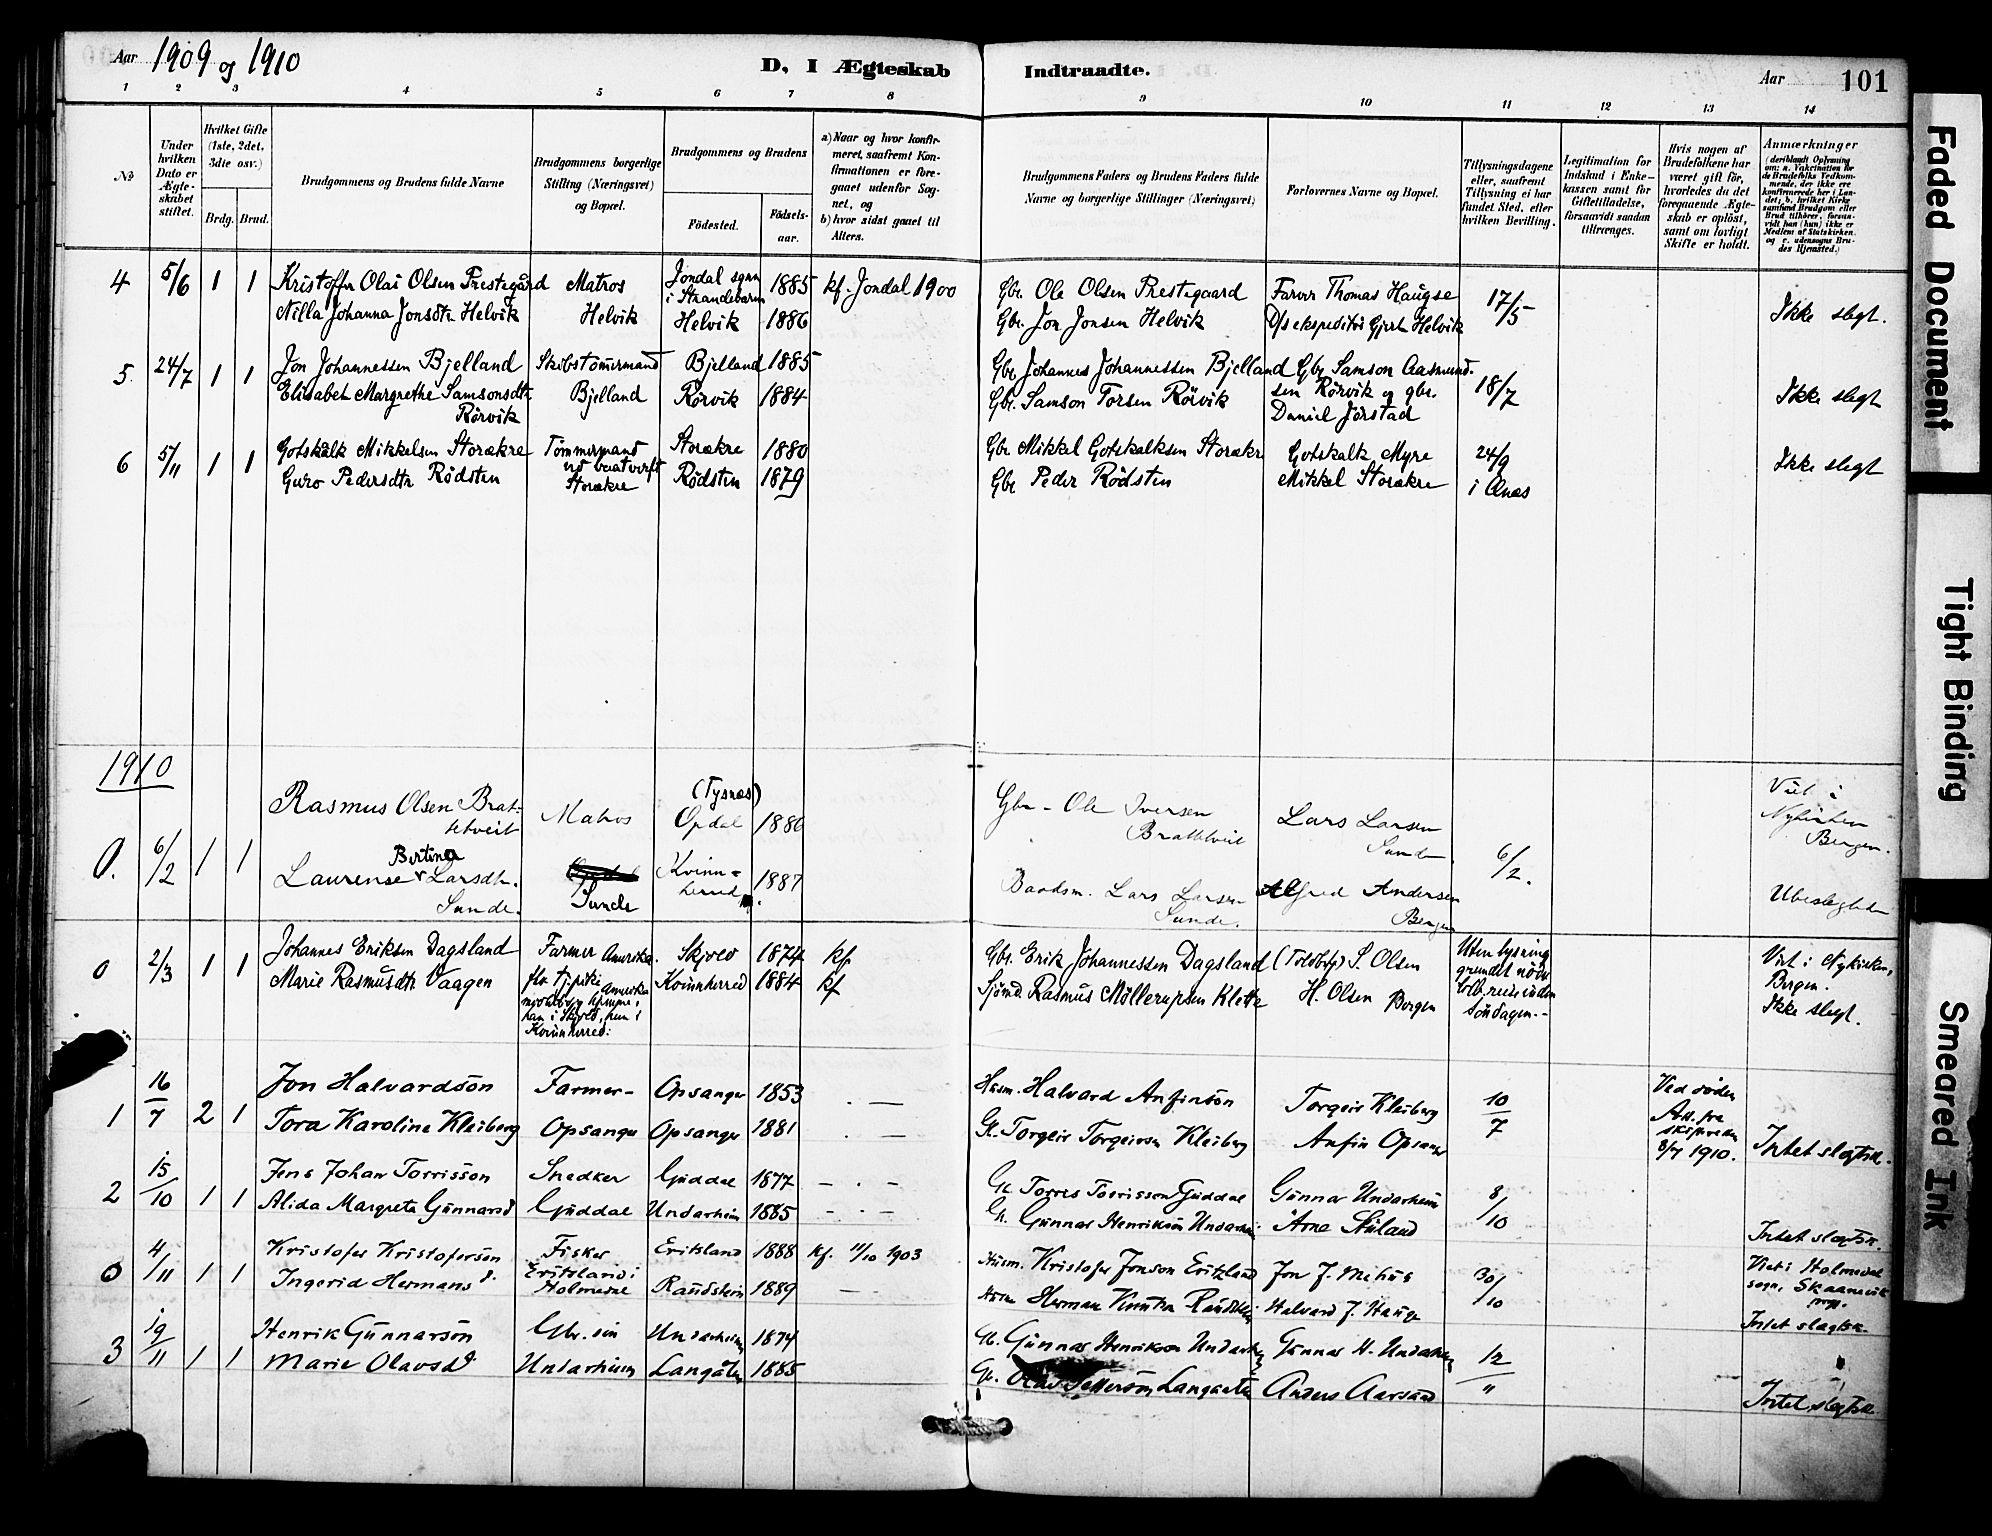 Aar 1909 og 1910
D, I Ægteskab Indtraadte.
Aar 101
1 2 3 4 5 6 7 8 9 10 11 12 13 14
No
Under hvilken Dato er Ægteskabet stiftet.
Hvilket Gifte (1ste, 2det, 3die osv.)
Brdg. Brud.
Brudgommens og Brudens fulde Navne
Brudgommens borgerlige Stilling (Næringsvei) og Bopæl.
Brudgommens og Brudens
Fødested. Fødselsaar.
a) Naar og hvor konfirmeret, saafremt Konfirmationen er foregaaet udenfor Sognet, og
b) hvor sidst gaaet til Alters.
Brudgommens Faders og Brudens Faders fulde Navne og borgerlige Stillinger (Næringsvei)
Forlovernes Navne og Bopæl.
Tillysningsdagene eller, saafremt Tillysning ei har fundet Sted, efter hvilken Bevilling.
Legitimation for Indskud i Enkekassen samt for Giftetilladelse, forsaavidt saadan tiltrænges.
Hvis nogen af Brudefolkene har været gift før, hvorledes da det foregaaende Ægteskab er opløst, samt om lovligt Skifte er holdt.
Anmærkninger (deriblandt Oplysning om: a. Vakcination for de Brudefolks Vedkommende, der ikke ere konfirmerede her i Landet; b. hvilket Kirkesamfund Brudgom eller Brud tilhører, forsaavidt han (hun) ikke er Medlem af Statskirken, og c. udensogns Brudes Hjemsted.)
4 5/6 1 1 Kristoffer Olai Olsen Prestegård Matros Jondal sogn i Strandebarm 1885 kf. Jondal 1900 Gbr. Ole Olsen Prestegaard Farver Thomas Haugse 17/5 Ikke slegt.
Nilla Johanna Jonsdtr Helvik Helvik Helvik 1886 Gbr. Jon Jonsen Helvik D/s ekspeditör Gjert Helvik
5. 24/7 1 1 Jon Johannessen Bjelland Skibstömmermand Bjelland 1885 Gbr. Johannes Johannessen Bjelland Gbr Samson Aasmund- 18/7 Ikke slegt
Elisabet Margrethe Samsonsdtr. Bjelland Rörvik 1884 Gbr. Samson Torsen Rörvik sen Rörvik og gbr.
Rörvik Daniel Jörstad
6 5/11 1 1 Gotskalk Mikkelsen Storækre Tömmermand Storækre 1880 Gbr Mikkel Gotskalksen Storækre Gotskalk Myre 24/9 Ikke slegt
Guro Pedersdtr Rödsten Storækre Rödsten 1879 Gbr Peder Rödsten Mikkel Storækre i Ænes
1910
0. 6/2 1 1 Rasmus Olsen Brat- Matros (Tysnes) Opdal 1886 Gbr - Ole Iversen Lars Larsen 6/2. Viet i
tetveit Brattetveit Sunde. Nykirken Bergen.
Bertina
Laurense Larsdtr. Sunde Kvinn- 1887 Baadsm. Lars Larsen Alfred Andersen Ubeslegtede
Sunde. herred Sunde. Bergen
0 2/3 1 1 Johannes Eriksen Dagsland Farmer Amerika. Skjold 1874 kf Gbr. Erik Johannessen Dagsland (Toldbtj) S. Olsen Uten lysning Viet i Nykirken,
Marie Rasmusdtr Vaagen Amerika Kvinnherred 1884 kf Sjömd. Rasmus Möllerupsen Klette H. Olsen Bergen grundet Bergen.
han i Skjold, hun i söndagen.- Ikke slegt.
Kvinnherred:
1 16/7 2 1 Jon Halvardsön Farmer- Opsanger 1853 . — Husm. Halvard Anfinsön Torgeir Kleiberg 10/7 Ved döden
Tora Karoline Kleiberg Opsange Opsanger 1881 . — G. Torgeir Torgeirsen Kleiberg Anfin Opsanger Att. fra
8/7 1910. Intet slegtsk.
2 15/10 1 1 Jens Johan Torrisson Snedker Guddal 1877 — . — G. Torris Torrisson Guddal Gunnar Undarheim 8/10
Alida Margreta Gunnarsd Guddal Undarheim 1885 — . — G. Gunnar Henriksön Undarheim Arne Stuland Intet slegtsk.
0 4/11 1 1 Kristofer Kristofersön Fisker Eritsland 1888 kf. 11/10 1903 Husm. Kristofer Jonson Eritzland Jon J. Mehus 30/10 Viet i Holmedal
Ingerid Hermansd. Eritsland i Holmedal Raudstein 1889 — Husm Herman Knutsen Raudstein Halvard J. Hauge sogn, Skaanevik prgj.
Intet slegtsk.
3 19/11 1 1 Henrik Gunnarsön Gbr. sön Undarheim 1874 G. Gunnar Henrikson Undarheim Gunnar H. Undarheim 12/11
Marie Olavsd Undarheim Langåten 1885 G. Olav Langaaten Anders Aarsand Intet slegtsk.
Faded Document
Tight Binding
Smeared Ink